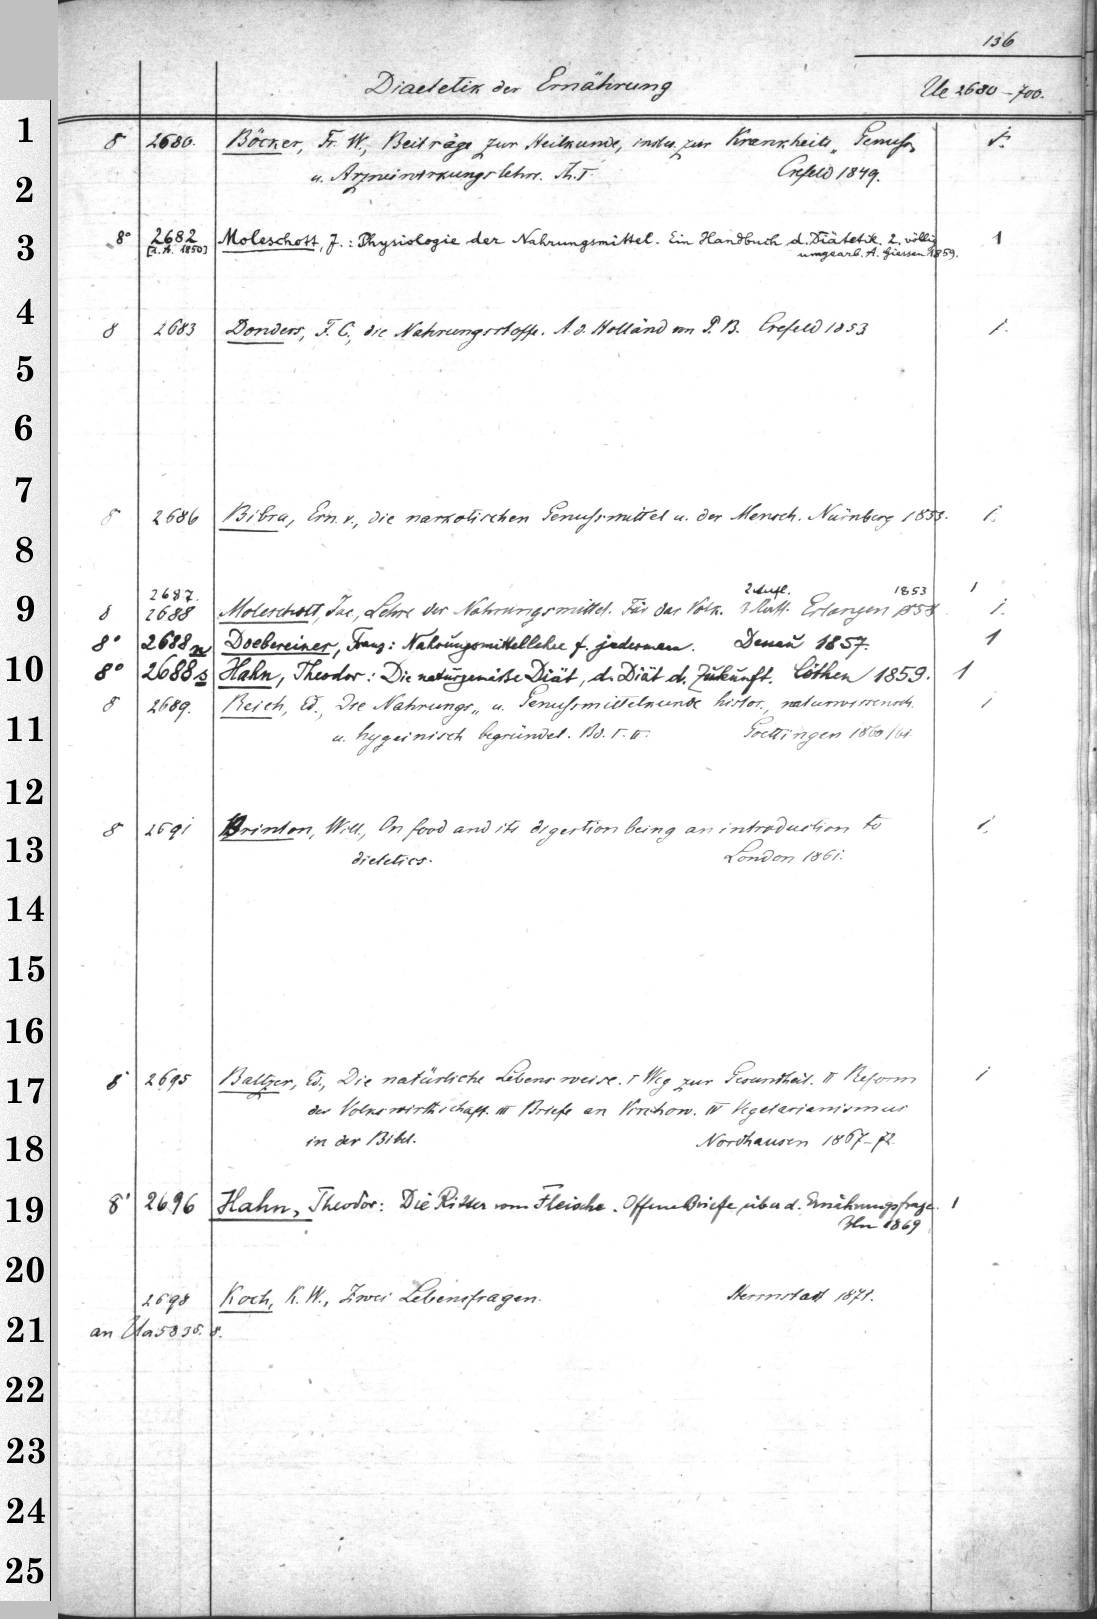 136
Diaetetik der Ernährung Ue 2680-700.
1
8 2680. Böcker, Fr. W., Beiträge zur Heilkunde, insb. zur Krankheits„ Genuss„ 1.
2
u. Arzneiwirkungslehre. Th. I. Crefeld 1849.
3
8° 2682 Moleschott, J.: Physiologie der Nahrungsmittel. Ein Handbuch d. Diätetik. 2. völlig 1
[a. A. 1850] umgearb. A. Giessen 1859.
4
8 2683 Donders, F. C., die Nahrungsstoffe. A. d. Holländ von P. B. Crefeld 1853 1.
5
6
7
8 2686 Bibra, Ern. v., die narkotischen Genussmittel u. der Mensch. Nürnberg 1855. 1.
8
2687. 2 Aufl. 1853 1
9
8 2688 Moleschott, Jac., Lehre der Nahrungsmittel. Für das Volk. 3 Aufl. Erlangen 1858 1.
8° 2688n Doebereiner, Franz: Nahrungsmittellehre f. jederman. Dessau 1857. 1
10
8° 2688s Hahn, Theodor: Die naturgemäße Diät, d. Diät d. Zukunft. Cöthen 1859. 1
8 2689. Reich, Ed., Die Nahrungs„ u. Genussmittelkunde histor., naturwissensch. 1
11
u. hygeinisch begründet. Bd. I. II. Goettingen 1860/61
12
8 2691 Brinton, Will., On food and its digestion being an introduction to 1.
13
dietetics. London 1861.
14
15
16
17
8 2695 Baltzer, Ed., Die natürliche Lebensweise. I Weg zur Gesundheit. II Reform 1
der Volkswirthschaft. III Briefe an Virchow. IV Vegetarianismus
18
in der Bibel. Nordhausen 1867-72
19
8° 2696 Hahn, Theodor: Die Ritter vom Fleische. Offene Briefe über d. Ernährungsfrage. 1
1869
20
2698 Koch, K. W., Zwei Lebensfragen. 1871.
21
an Ua 5835. 8.
22
23
24
25